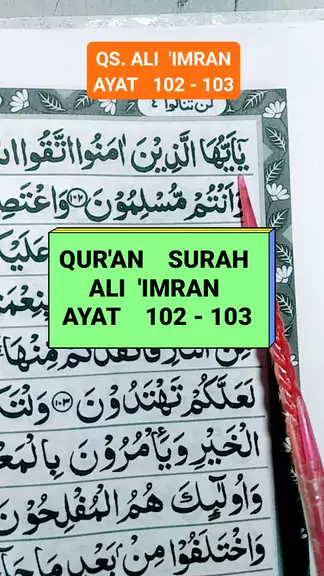 QS. ALI 'IMRAN
AYAT 102 - 103
لن تنالوا ٤
يٰٓاَيُّهَا الَّذِيْنَ اٰمَنُوا اتَّقُوا
وَاَنْتُمْ مُّسْلِمُوْنَ ۝١٠٢ وَاعْتَصِ
عَلَيْكُ
QUR'AN SURAH
ALI 'IMRAN
AYAT 102 - 103
بِنِعْمَ
مِنْهَا
لَعَلَّكُمْ تَهْتَدُوْنَ ۝١٠٣ وَلْتَكُ
الْخَيْرِ وَيَأْمُرُوْنَ بِالْمَعْ
وَاُولٰۤىِٕكَ هُمُ الْمُفْلِحُوْنَ
وَاخْتَلَفُوْا مِنْۢ بَعْدِ مَا جَاۤءَ